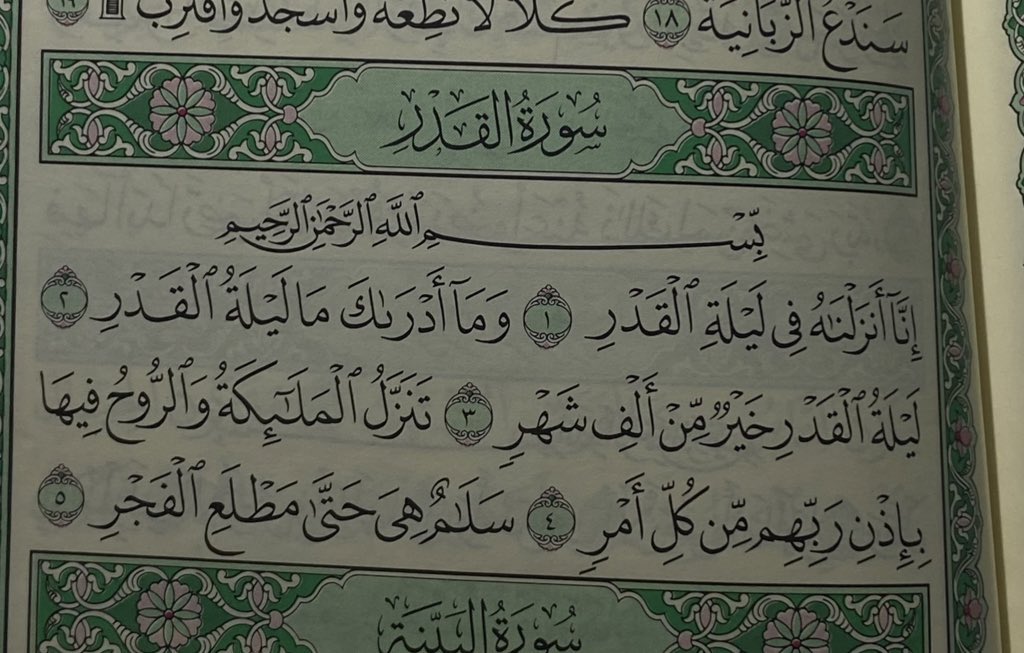 سَنَدْعُ ٱلزَّبَانِيَةَ ١٨ كَلَّا لَا تُطِعْهُ وَٱسْجُدْ وَٱقْتَرِب ۩ ١٩
سُورَةُ القَدْرِ
بِسْمِ ٱللَّهِ ٱلرَّحْمَٰنِ ٱلرَّحِيمِ
إِنَّآ أَنزَلْنَٰهُ فِى لَيْلَةِ ٱلْقَدْرِ ١ وَمَآ أَدْرَىٰكَ مَا لَيْلَةُ ٱلْقَدْرِ ٢
لَيْلَةُ ٱلْقَدْرِ خَيْرٌ مِّنْ أَلْفِ شَهْرٍ ٣ تَنَزَّلُ ٱلْمَلَٰٓئِكَةُ وَٱلرُّوحُ فِيهَا
بِإِذْنِ رَبِّهِم مِّن كُلِّ أَمْرٍ ٤ سَلَٰمٌ هِىَ حَتَّىٰ مَطْلَعِ ٱلْفَجْرِ ٥
سُورَةُ البَيِّنَةِ